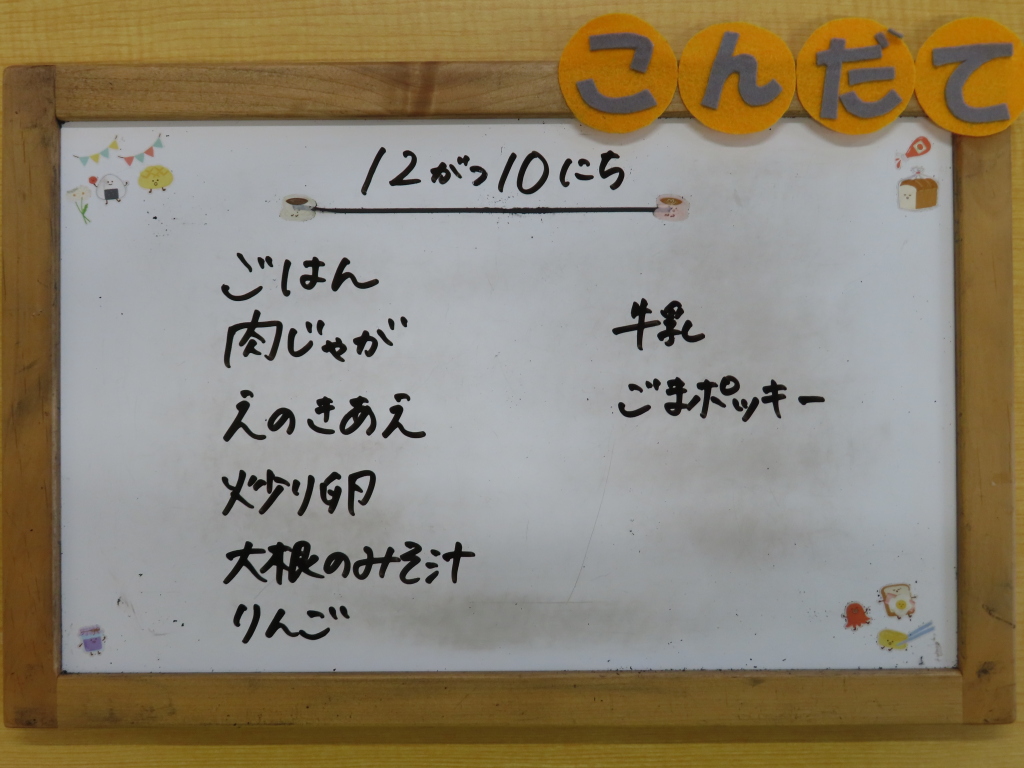 こんだて
12がつ10にち
ごはん
肉じゃが
えのきあえ
炒り卵
大根のみそ汁
りんご
牛乳
ごまポッキー